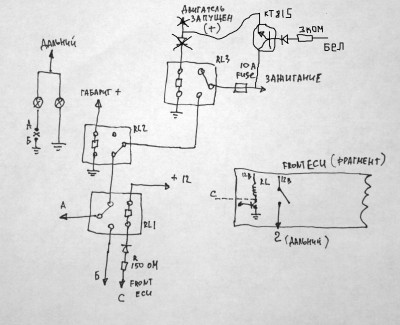 ДВИГАТЕЛЬ
ЗАПУЩЕН
(+)
КТ815
1 КОМ
БЕЛ
ДАЛЬНИЙ
RL3
10 A
FUSE
ЗАЖИГАНИЕ
ГАБАРИТ +
А
Б
RL2
FRONT ECU (ФРАГМЕНТ)
+ 12
12В
RL
12В
С
А
RL1
R
150 ОМ
2 (ДАЛЬНИЙ)
Б
С
FRONT
ECU